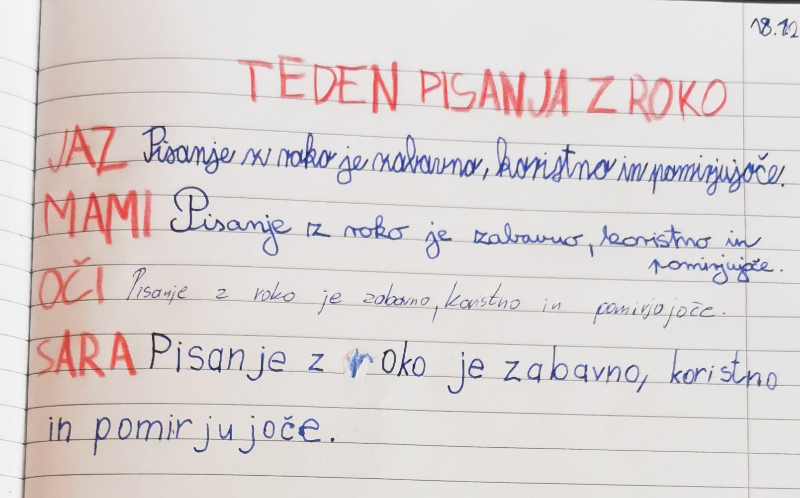 18.12
TEDEN PISANJA Z ROKO
JAZ Pisanje z roko je zabavno, koristno in pomirjujoče.
MAMI Pisanje z roko je zabavno, koristno in
pomirjujoče.
OČI Pisanje z roko je zabavno, koristno in pomirjajoče.
SARA Pisanje z roko je zabavno, koristno
in pomirjujoče.